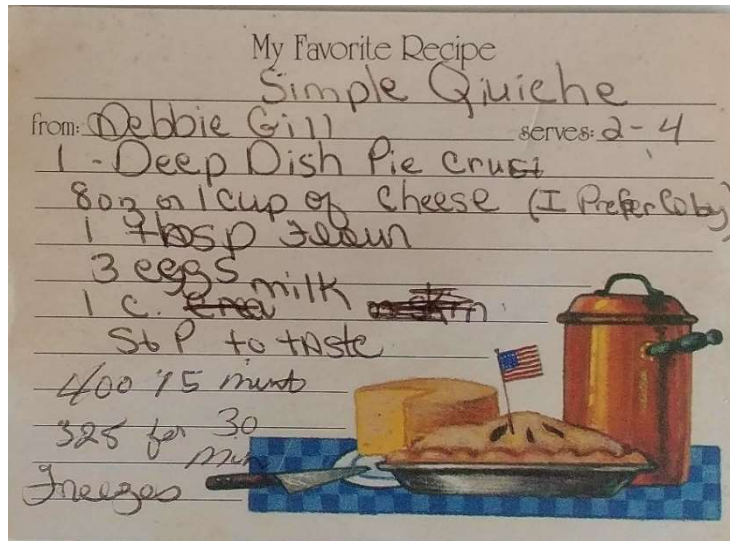 My Favorite Recipe
Simple Qiuiche
from: Debbie Gill serves: 2-4
1 - Deep Dish Pie Crust
8oz or 1 cup of Cheese (I Prefer Coby)
1 Tbsp Flour
3 eggs
1 C. milk
S & P to taste
400 15 mins
325 for 30
min
Freezes